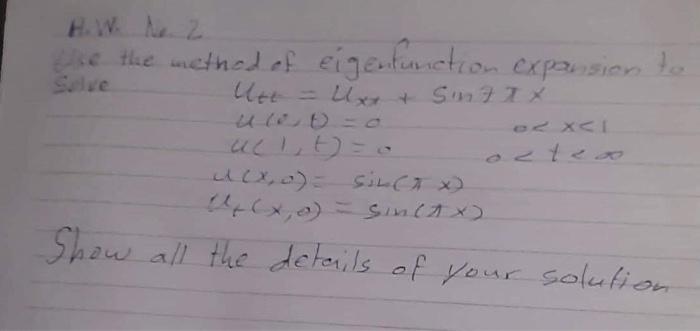 H.W. No. 2
Use the method of eigenfunction expansion to
Solve u_tt = u_xx + sin 7πx
u(0,t) = 0 0 < x < 1
u(1,t) = 0 0 < t < ∞
u(x,0) = sin(πx)
u_t(x,0) = sin(πx)
Show all the details of your solution